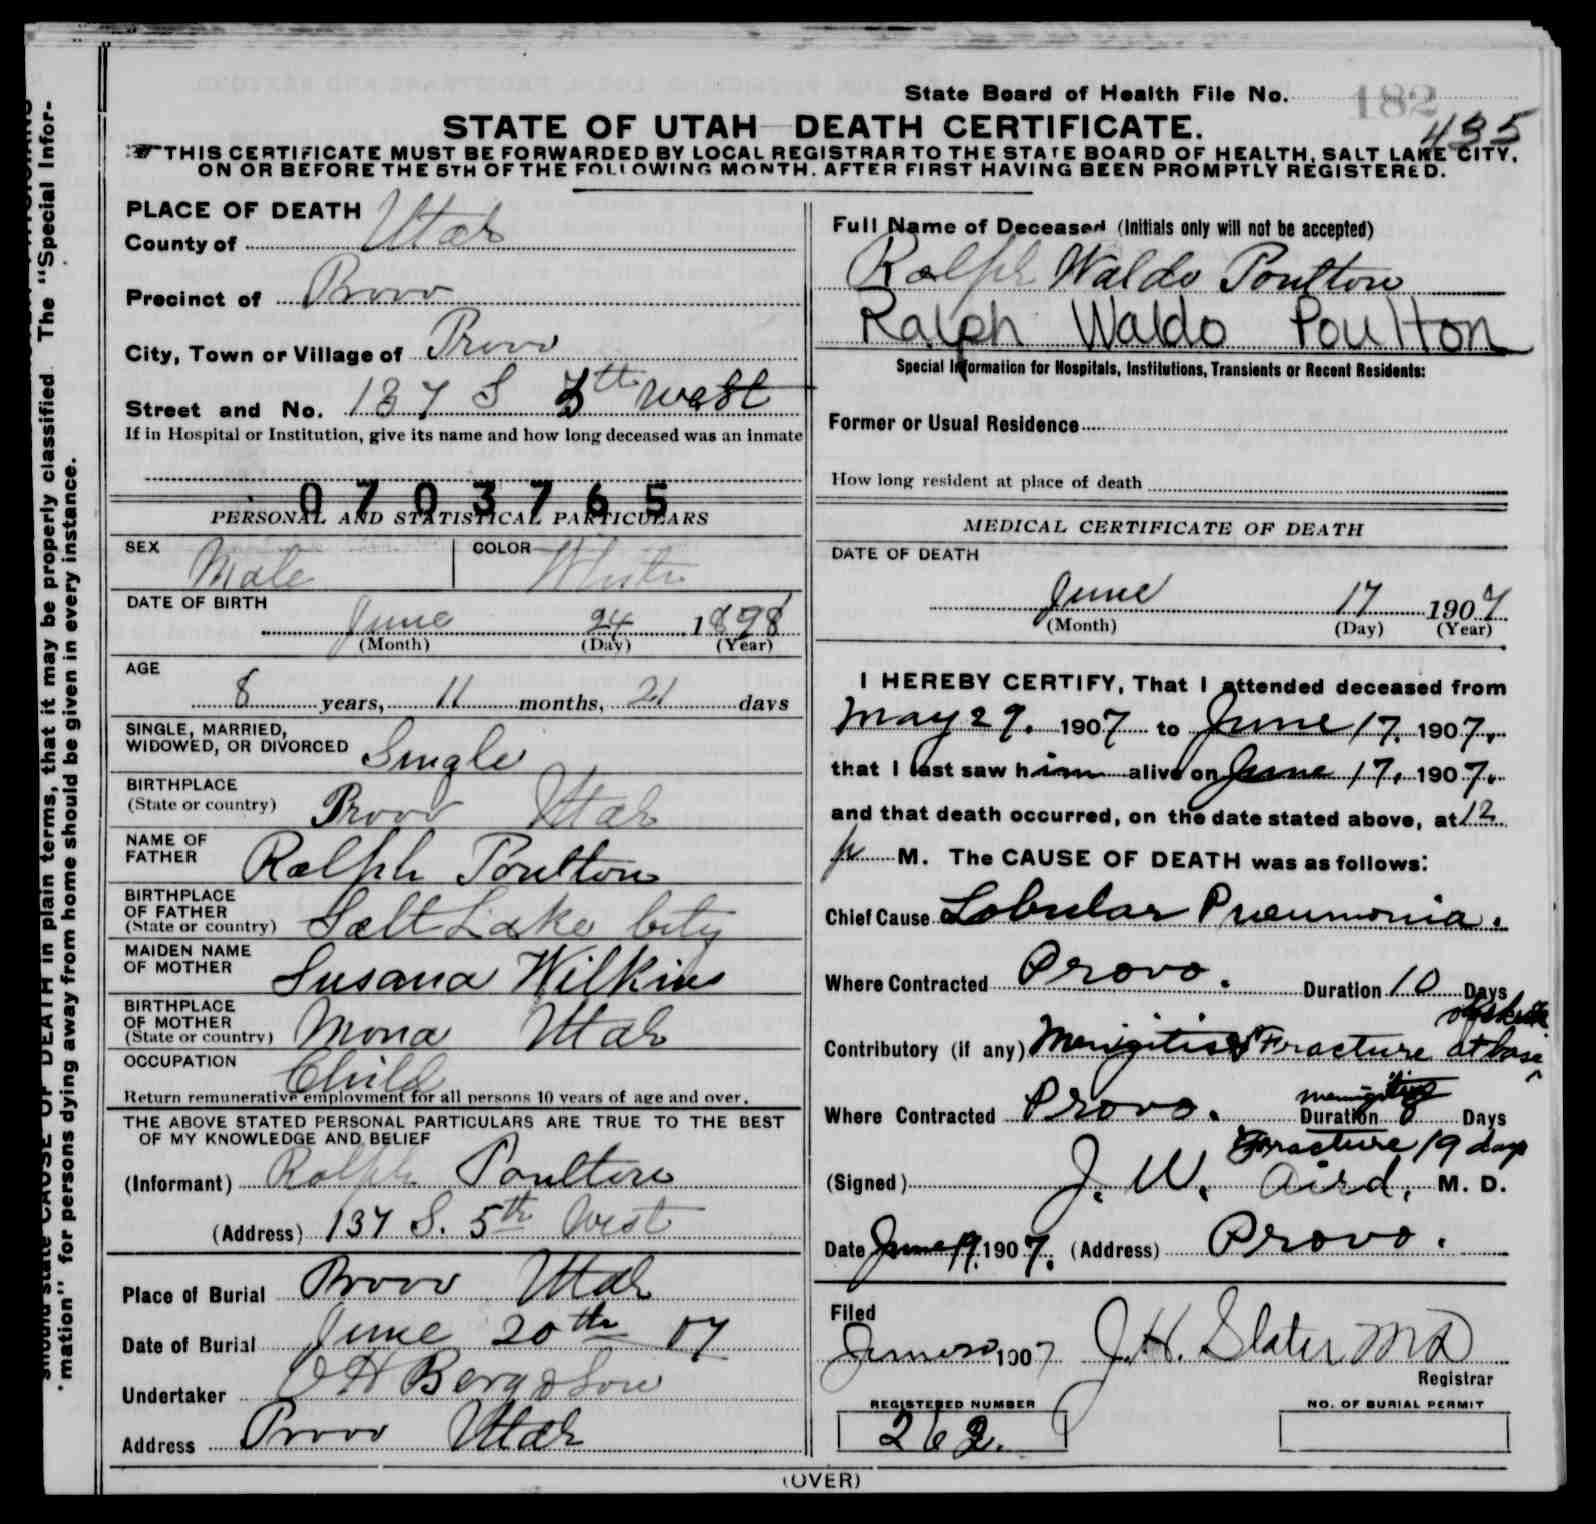 State Board of Health File No. 182
435
STATE OF UTAH DEATH CERTIFICATE.
THIS CERTIFICATE MUST BE FORWARDED BY LOCAL REGISTRAR TO THE STATE BOARD OF HEALTH, SALT LAKE CITY,
ON OR BEFORE THE 5TH OF THE FOLLOWING MONTH, AFTER FIRST HAVING BEEN PROMPTLY REGISTERED.
should state CAUSE OF DEATH in plain terms, that it may be properly classified. The "Special Infor-
mation" for persons dying away from home should be given in every instance.
PLACE OF DEATH
County of Utah
Precinct of Provo
City, Town or Village of Provo
Street and No. 137 S 5th West
If in Hospital or Institution, give its name and how long deceased was an inmate
0703765
PERSONAL AND STATISTICAL PARTICULARS
SEX Male COLOR White
DATE OF BIRTH
June 24 1898
(Month) (Day) (Year)
AGE
8 years, 11 months, 21 days
SINGLE, MARRIED,
WIDOWED, OR DIVORCED Single
BIRTHPLACE
(State or country) Provo Utah
NAME OF
FATHER Ralph Poulton
BIRTHPLACE
OF FATHER
(State or country) Salt Lake City
MAIDEN NAME
OF MOTHER Susana Wilkins
BIRTHPLACE
OF MOTHER
(State or country) Mona Utah
OCCUPATION
Child
Return remunerative employment for all persons 10 years of age and over.
THE ABOVE STATED PERSONAL PARTICULARS ARE TRUE TO THE BEST
OF MY KNOWLEDGE AND BELIEF
(Informant) Ralph Poulton
(Address) 137 S. 5th West
Place of Burial Provo Utah
Date of Burial June 20th 07
Undertaker O H Berg & Son
Address Provo Utah
Full Name of Deceased (Initials only will not be accepted)
Ralph Waldo Poulton
Ralph Waldo Poulton
Special Information for Hospitals, Institutions, Transients or Recent Residents:
Former or Usual Residence
How long resident at place of death
MEDICAL CERTIFICATE OF DEATH
DATE OF DEATH
June 17 1907
(Month) (Day) (Year)
I HEREBY CERTIFY, That I attended deceased from
May 29. 1907 to June 17, 1907,
that I last saw him alive on June 17, 1907.
and that death occurred, on the date stated above, at 12
p M. The CAUSE OF DEATH was as follows:
Chief Cause Lobular Pneumonia.
Where Contracted Provo. Duration 10 Days
of skull
Contributory (if any) Meningitis & Fracture at base
meningitis
Where Contracted Provo. Duration 8 Days
Fracture 19 days
(Signed) J. W. Aird, M. D.
Date June 19, 1907. (Address) Provo.
Filed
June 20 1907 J. H. Slater MD
Registrar
REGISTERED NUMBER
262.
NO. OF BURIAL PERMIT
(OVER)